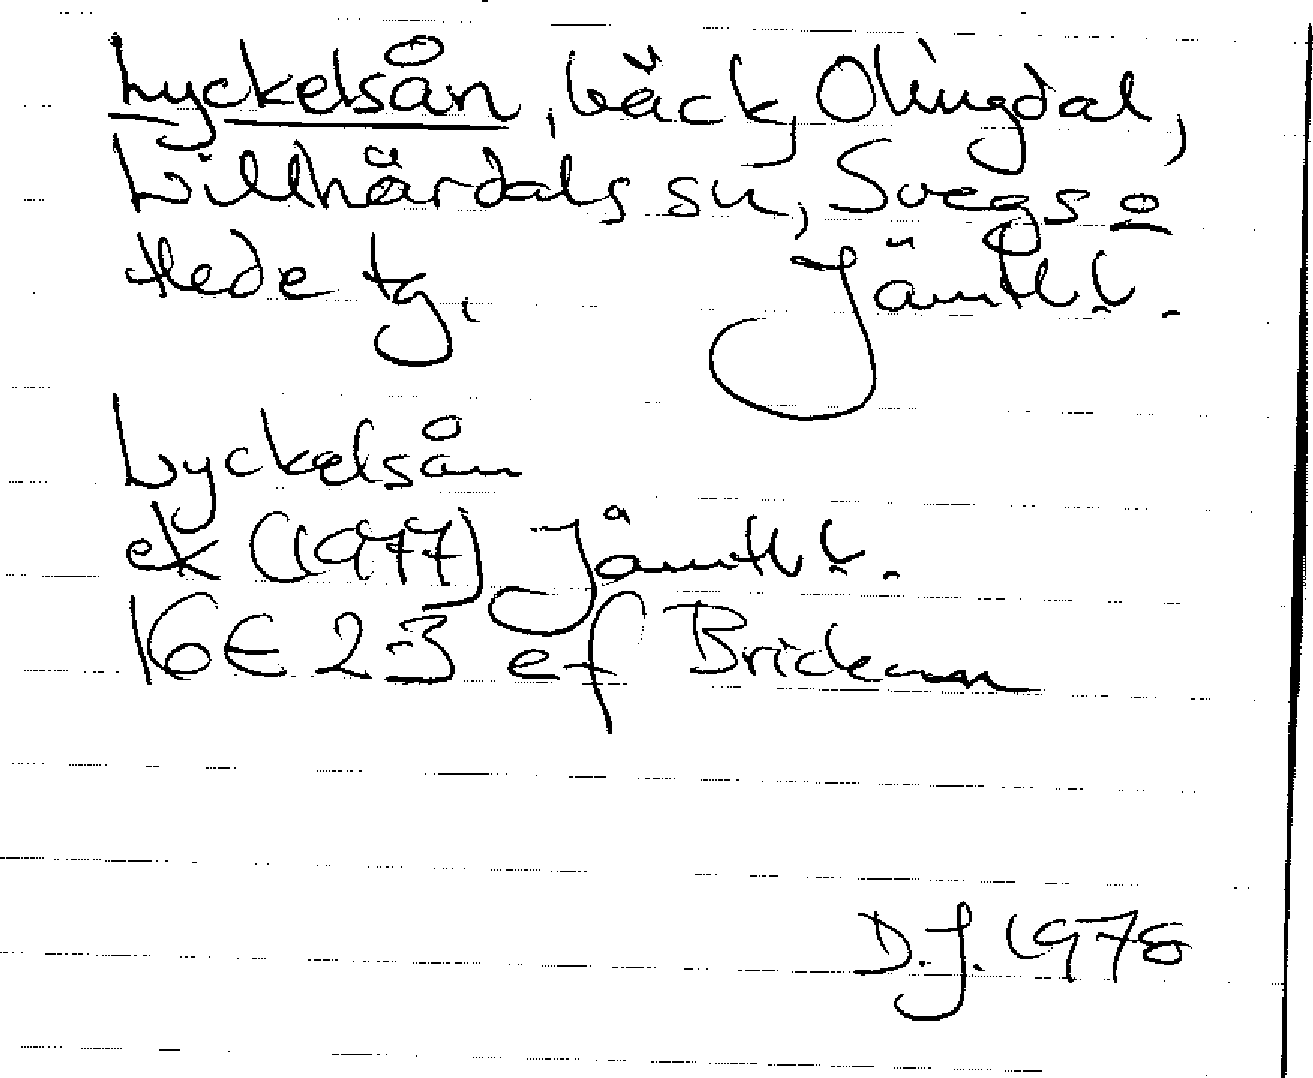 Lyckelsån, bäck, Olingdal,
Lillhärdals sn, Svegs o
Hede tg. Jämtl l.
Lyckelsån
ek (1977) Jämtl l.
16E 2-3 ef Brickman
D.J. 1978